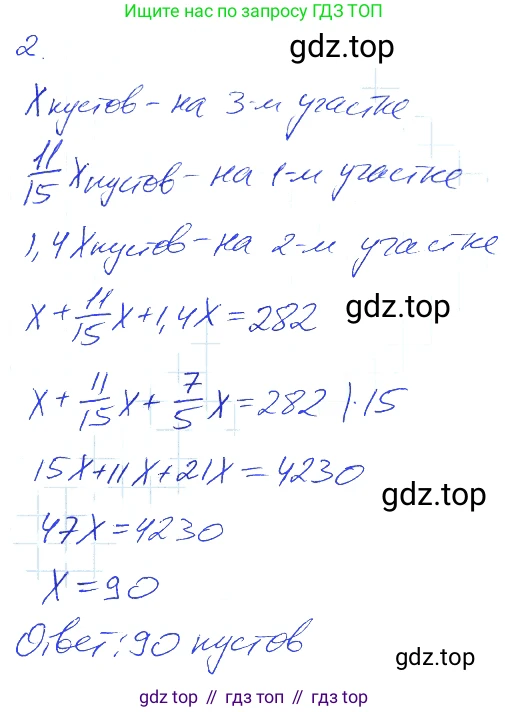 Ищите нас по запросу ГДЗ ТОП
2.
gdz.top
X кустов - на 3-м участке
11/15 X кустов - на 1-м участке
1,4X кустов - на 2-м участке
X + 11/15 X + 1,4X = 282
gdz.top
X + 11/15 X + 7/5 X = 282 |·15
15X + 11X + 21X = 4230
gdz.top
47X = 4230
X = 90
Ответ: 90 кустов
gdz.top
gdz top // гдз топ // gdz.top